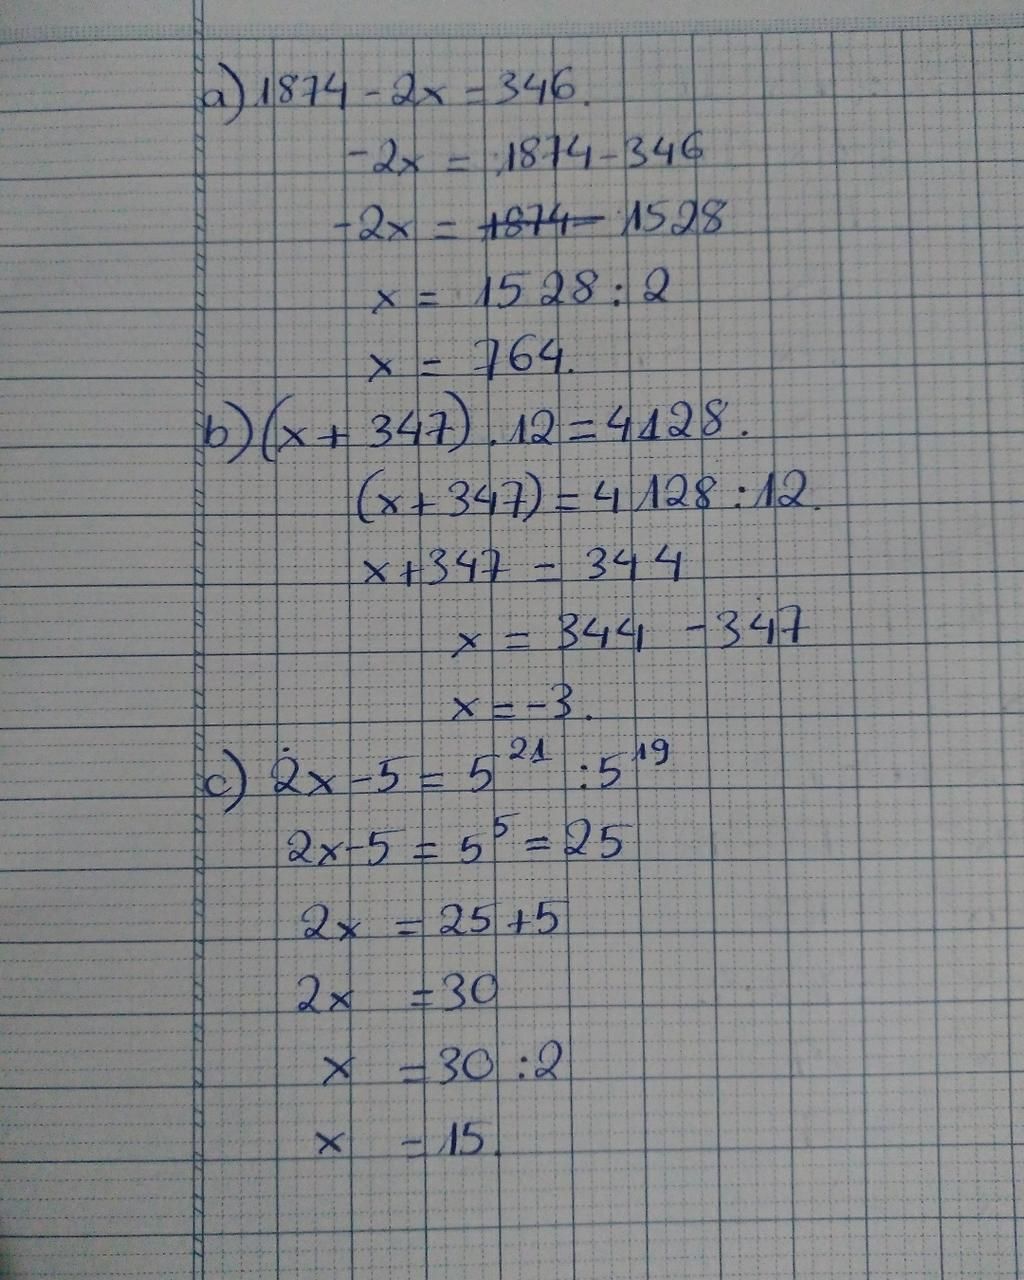 a) 1874 - 2x = 346.
-2x = 1874 - 346
-2x = ~~1874 -~~ 1528
x = 1528 : 2
x = 764.
b) (x + 347) . 12 = 4128.
(x + 347) = 4128 : 12.
x + 347 = 344
x = 344 - 347
x = -3.
c) 2x - 5 = 5²¹ : 5¹⁹
2x - 5 = 5⁵ = 25
2x = 25 + 5
2x = 30
x = 30 : 2
x = 15.